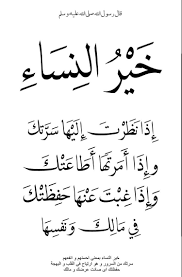 قال رسول الله صلى الله عليه و سلم
خَيْرُ النِسَاءِ
إِذَا نَظَرْتَ إِلَيْهَا سَرَّتكَ
وَإِذَا أَمَرتَهَا أَطَاعَتْكَ
وَإِذَا غِبْتَ عَنْهَا حَفِظَتْكَ
فِي مَالِكَ وَنَفْسِهَا
خير النساء يعني احسنهم و انفعهم
سرتك من السرور و هو ارتياح في القلب و البهجة
حفظتك اي صانت عرضك و مالك